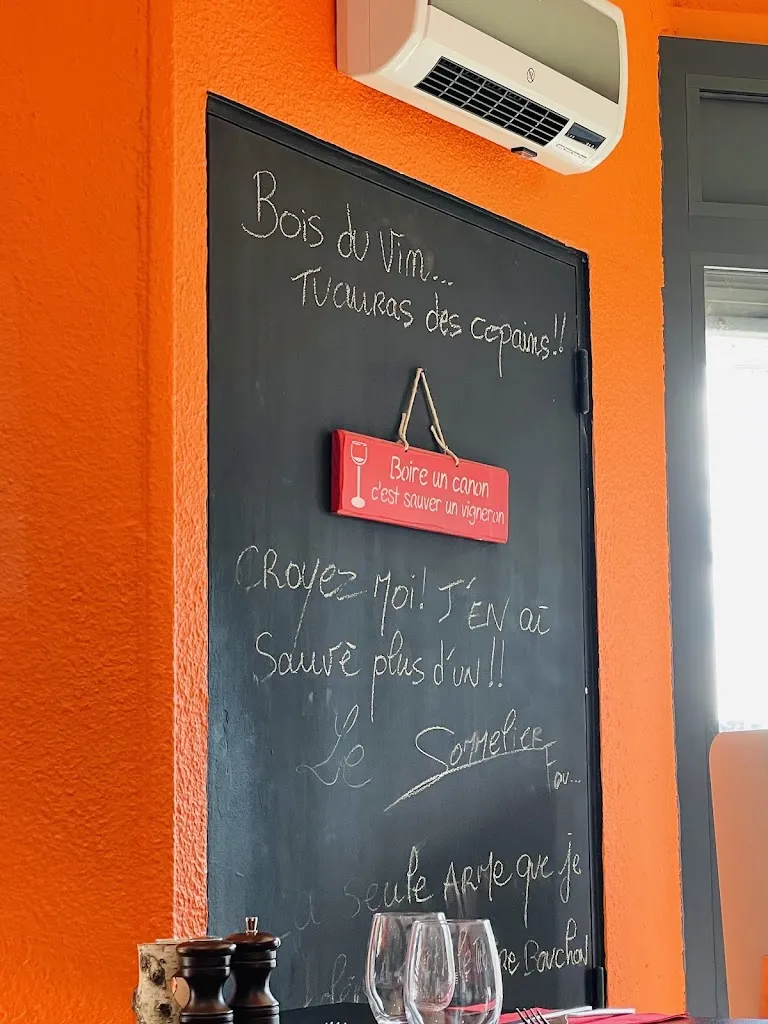 Bois du vin...
Tu auras des copains!!
Boire un canon
c'est sauver un vigneron
CROYEZ MOI! J'EN ai
Sauvé plus d'un!!
Le Sommelier
Fou...
La seule ARME que je
Bouchon